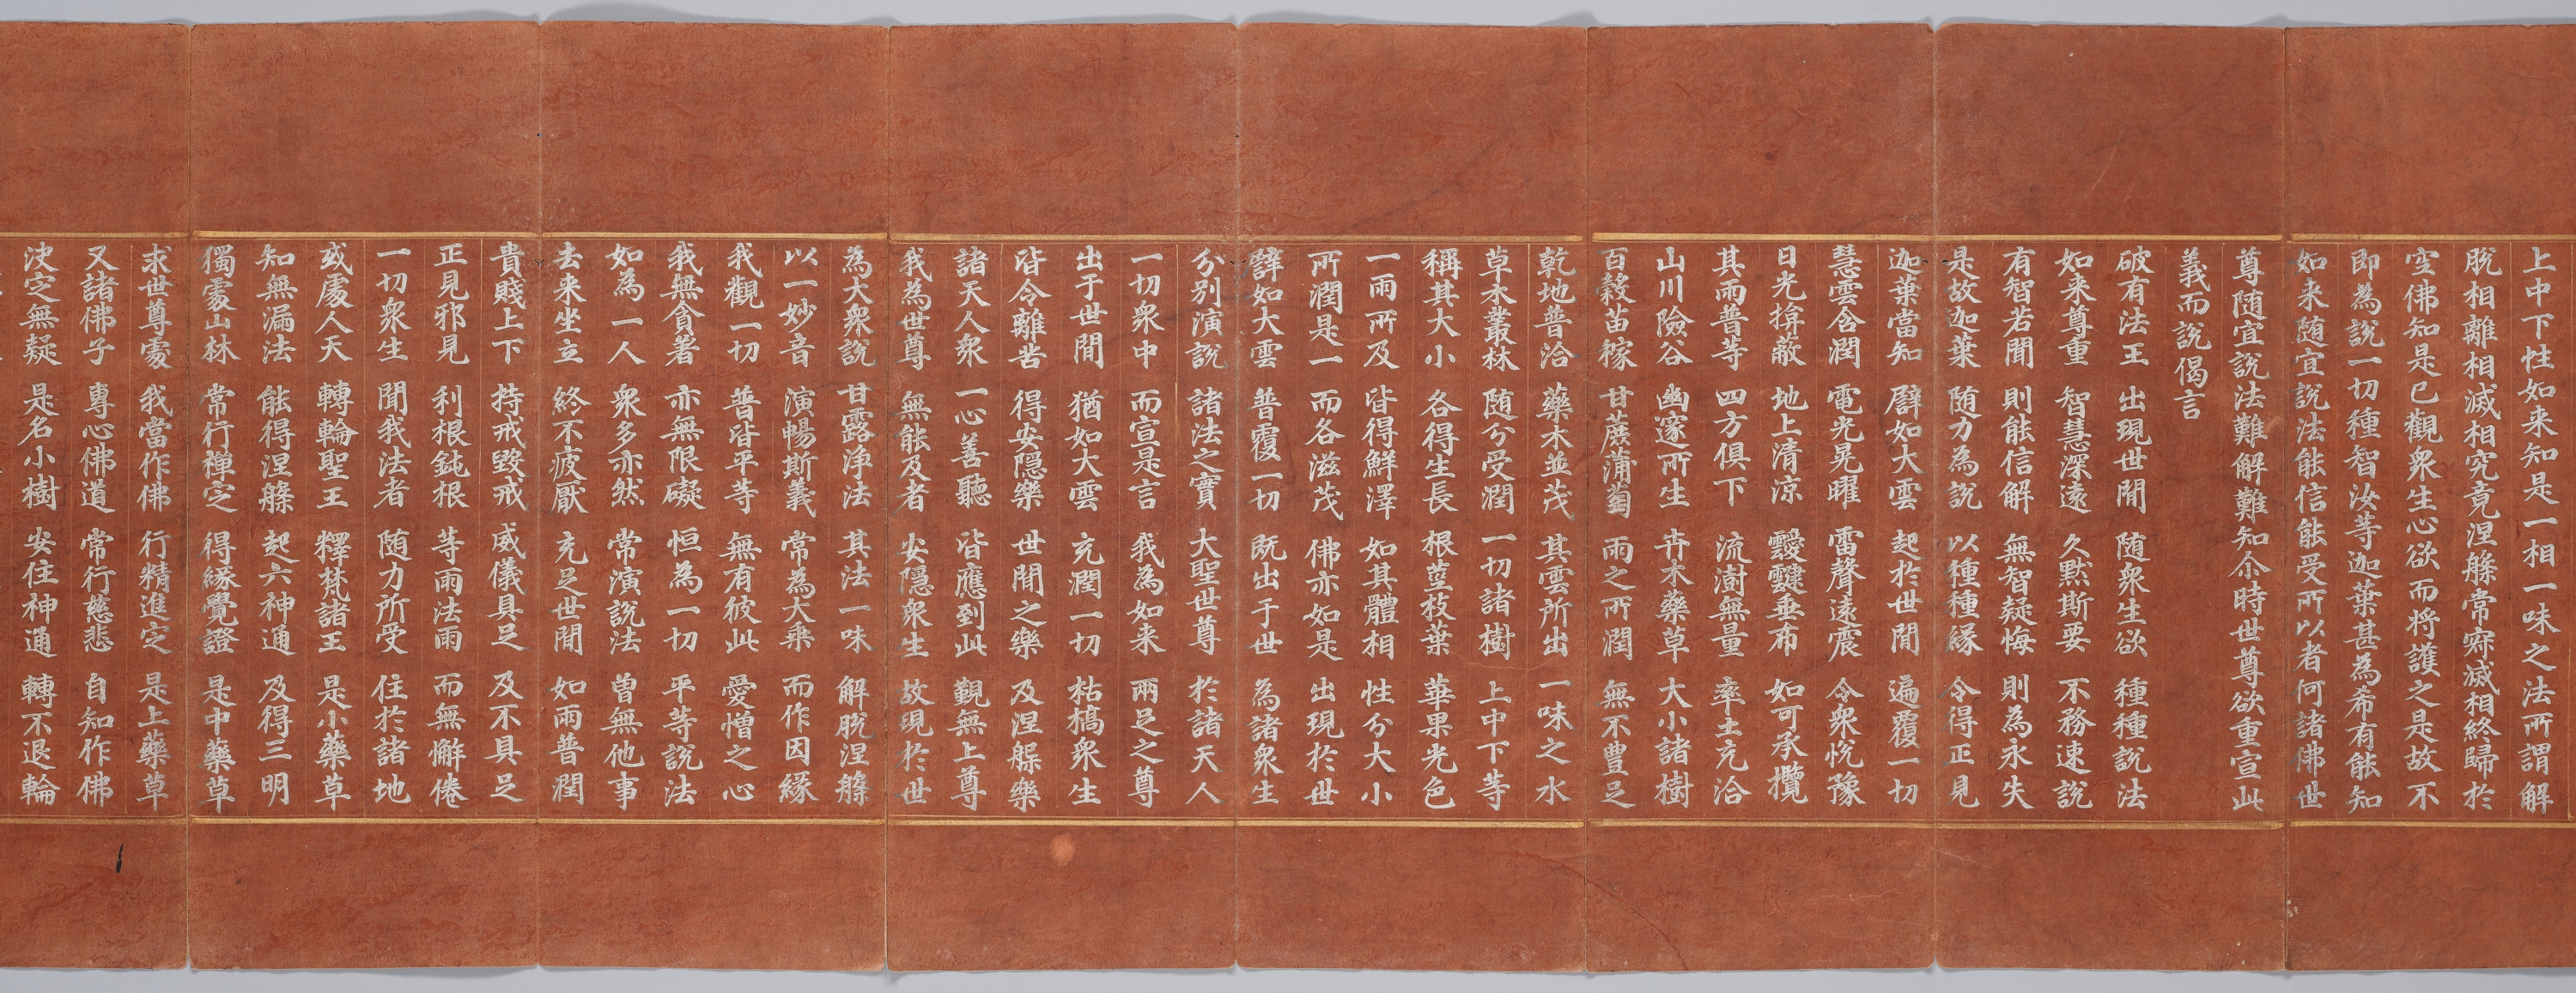 上中下性如来知是一相一味之法所謂解
脱相離相滅相究竟涅槃常寂滅相終歸於
空佛知是已觀衆生心欲而将護之是故不
即為說一切種智汝等迦葉甚為希有能知
如来随宜說法能信能受所以者何諸佛世
尊随宜說法難解難知尒時世尊欲重宣此
義而說偈言
破有法王 出現世間 随衆生欲 種種說法
如来尊重 智慧深遠 久黙斯要 不務速說
有智若聞 則能信解 無智疑悔 則為永失
是故迦葉 随力為說 以種種緣 令得正見
迦葉當知 譬如大雲 起於世間 遍覆一切
慧雲含潤 電光晃曜 雷聲遠震 令衆恱豫
日光揜蔽 地上清涼 靉靆垂布 如可承攬
其雨普等 四方俱下 流澍無量 率土充洽
山川險谷 幽邃所生 卉木藥草 大小諸樹
百穀苗稼 甘蔗蒲萄 雨之所潤 無不豊足
乾地普洽 藥木並茂 其雲所出 一味之水
草木叢林 随分受潤 一切諸樹 上中下等
稱其大小 各得生長 根莖枝葉 華果光色
一雨所及 皆得鮮澤 如其體相 性分大小
所潤是一 而各滋茂 佛亦如是 出現於世
譬如大雲 普覆一切 既出于世 為諸衆生
分別演說 諸法之實 大聖世尊 於諸天人
一切衆中 而宣是言 我為如来 兩足之尊
出于世間 猶如大雲 充潤一切 枯槁衆生
皆令離苦 得安隠樂 世間之樂 及涅槃樂
諸天人衆 一心善聽 皆應到此 覲無上尊
我為世尊 無能及者 安隠衆生 故現於世
為大衆說 甘露淨法 其法一味 解脱涅槃
以一妙音 演暢斯義 常為大乗 而作因緣
我觀一切 普皆平等 無有彼此 愛憎之心
我無貪著 亦無限礙 恒為一切 平等說法
如為一人 衆多亦然 常演說法 曽無他事
去来坐立 終不疲厭 充足世間 如雨普潤
貴賤上下 持戒毀戒 威儀具足 及不具足
正見邪見 利根鈍根 等雨法雨 而無懈倦
一切衆生 聞我法者 随力所受 住於諸地
或處人天 轉輪聖王 釋梵諸王 是小藥草
知無漏法 能得涅槃 起六神通 及得三明
獨處山林 常行禪定 得緣覺證 是中藥草
求世尊處 我當作佛 行精進定 是上藥草
又諸佛子 專心佛道 常行慈悲 自知作佛
決定無疑 是名小樹 安住神通 轉不退輪